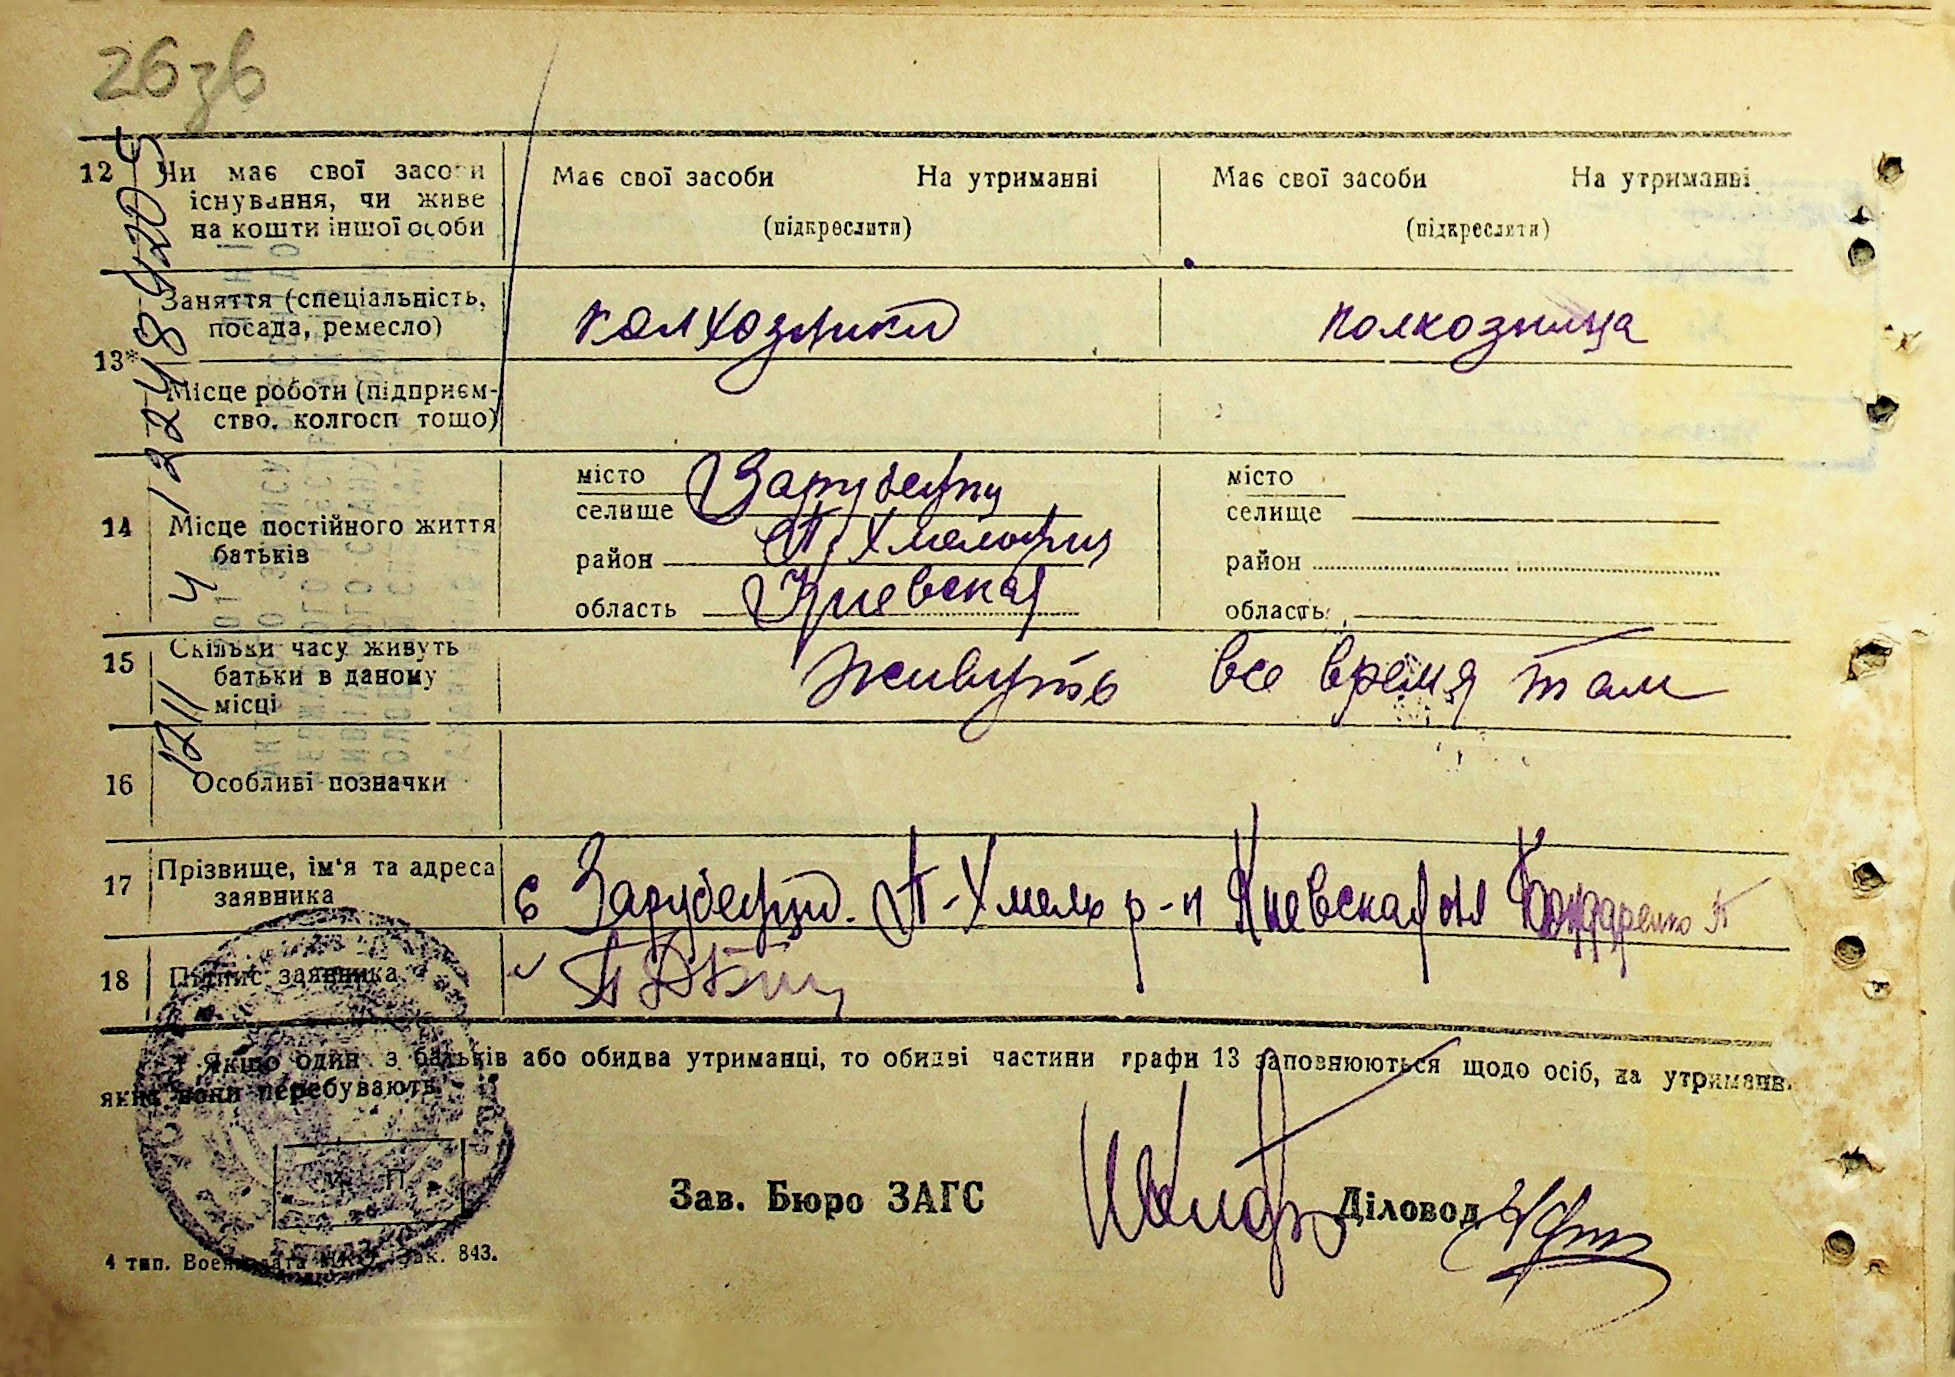 26зв
12 Чи має свої засоби Має свої засоби На утриманні Має свої засоби На утриманні
існування, чи живе
на кошти іншої особи (підкреслити) (підкреслити)
Заняття (спеціальність, колхозники колхозница
посада, ремесло)
13*
Місце роботи (підприєм-
ство, колгосп тощо)
місто Зарубенцы місто
селище селище
14 Місце постійного життя
батьків
район П. Хмельн район
область Киевская область
15 Скільки часу живуть
батьки в даному живуть все время там
місці
16 Особливі позначки
17 Прізвище, ім'я та адреса с Зарубенцы. П-Хмель р-н Киевская обл Бондаренко П
заявника
18 Підпис заявника
* Якщо один з батьків або обидва утриманці, то обидві частини графи 13 заповнюються щодо осіб, на утриманні
яких вони перебувають.
М. П.
Зав. Бюро ЗАГС Діловод
4 тип. Воениздата НКО. Зак. 843.